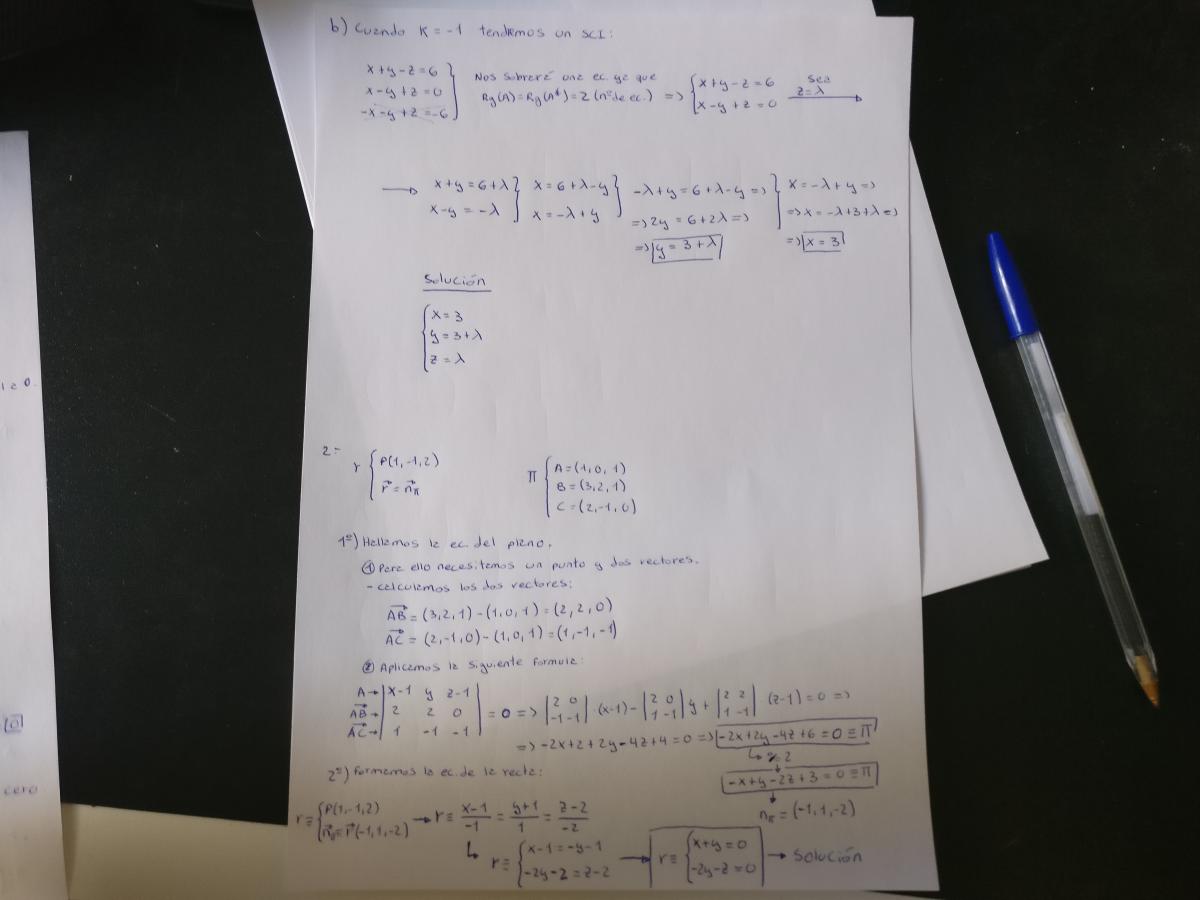 b) Cuando K = -1 tendremos un SCI:
x+y-z=6
x-y+z=0
-x-y+z=-6
Nos sobrará una ec. ya que
Rg(A)=Rg(A*)=2 (nº de ec.) =>
x+y-z=6
x-y+z=0
sea
z=λ
x+y=6+λ
x-y=-λ
x=6+λ-y
x=-λ+y
-λ+y=6+λ-y=>
=>2y=6+2λ=>
=>y=3+λ
x=-λ+y=>
=>x=-λ+3+λ=>
=>x=3
Solución
x=3
y=3+λ
z=λ
2=
r
P(1,-1,2)
r=nπ
π
A=(1,0,1)
B=(3,2,1)
C=(2,-1,0)
1º) Hallamos la ec. del plano.
① Para ello necesitamos un punto y dos vectores.
- calculamos los dos vectores:
AB=(3,2,1)-(1,0,1)=(2,2,0)
AC=(2,-1,0)-(1,0,1)=(1,-1,-1)
② Aplicamos la siguiente formula:
A→ |x-1 y z-1|
AB→ |2 2 0| =0=> |2 0; -1 -1|·(x-1)-|2 0; 1 -1|y+|2 2; 1 -1|(z-1)=0=>
AC→ |1 -1 -1|
=>-2x+2+2y-4z+4=0=> -2x+2y-4z+6=0≡π
% 2
-x+y-2z+3=0≡π
nπ=(-1,1,-2)
2º) Formamos la ec. de la recta:
r≡
P(1,-1,2)
nπ=r(-1,1,-2)
→ r≡ (x-1)/-1 = (y+1)/1 = (z-2)/-2
r≡
x-1=-y-1
-2y-2=z-2
r≡
x+y=0
-2y-z=0
→ Solución
cero